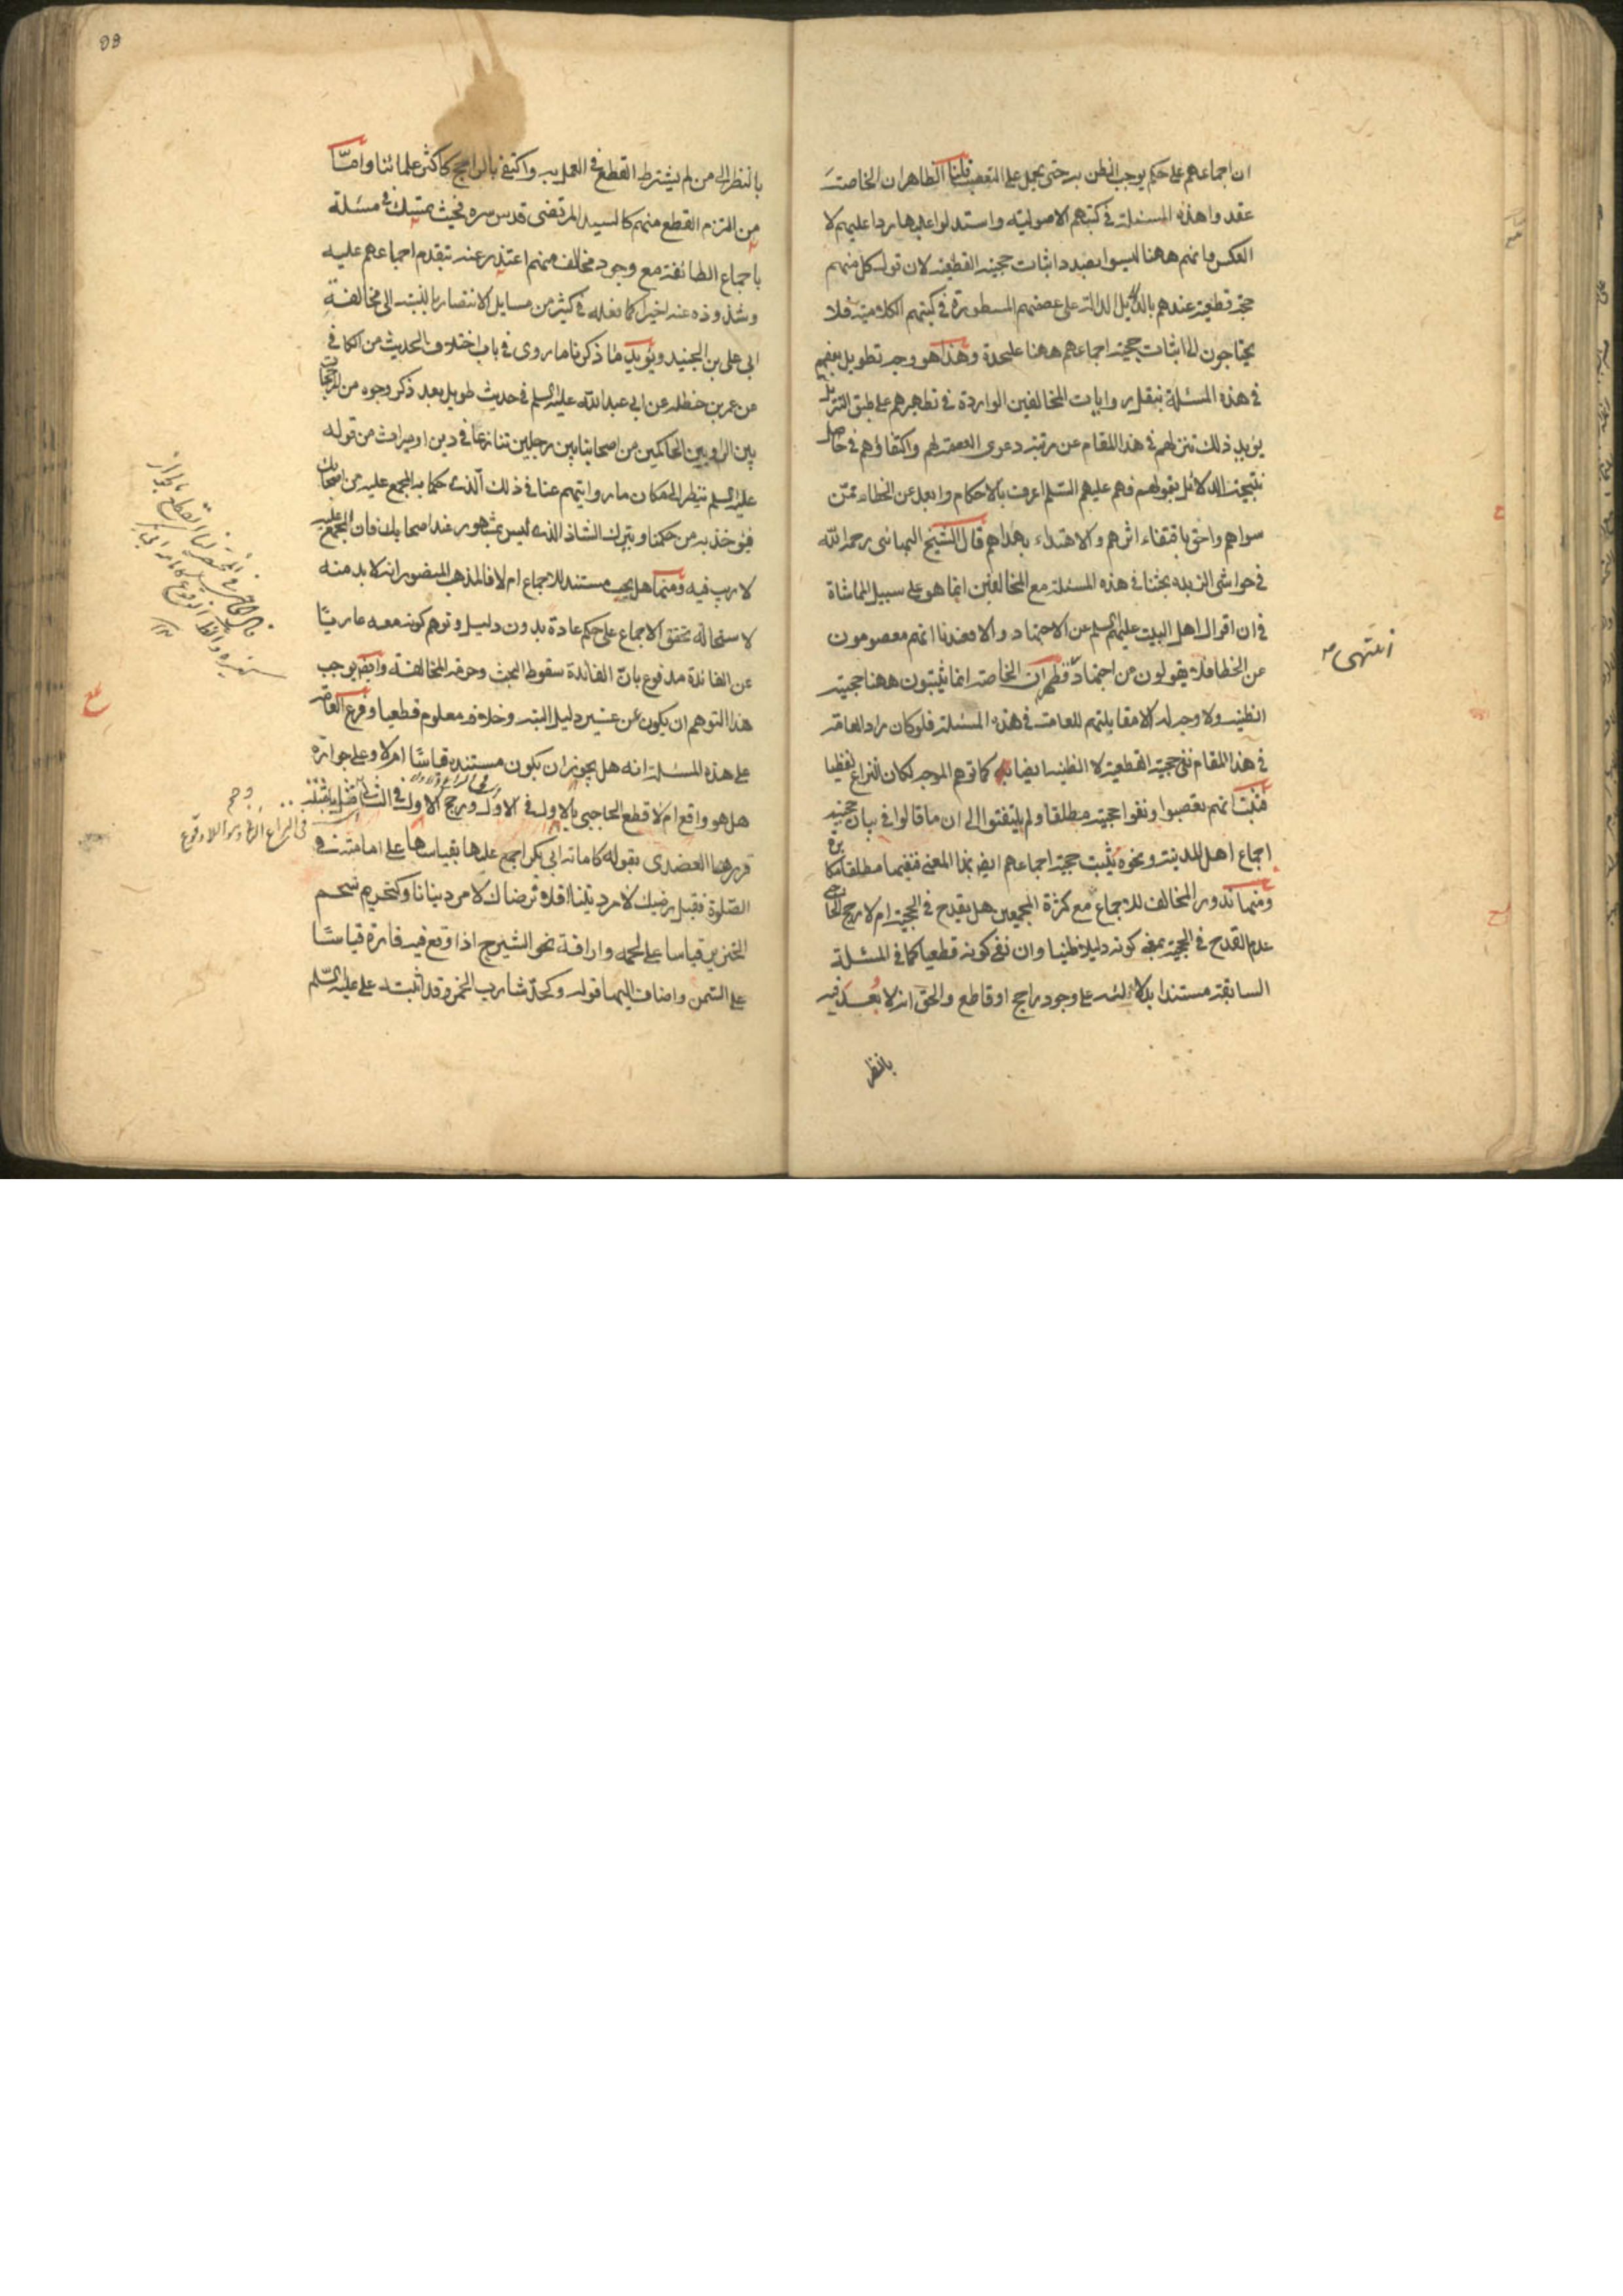 ان اجماعهم على حكم يوجب الظن به حتى يحمل على التعصب قلنا الظاهر ان الخاصة
عقدوا هذه المسئلة في كتبهم الاصولية واستدلوا عليها ردا عليهم لا
العكس فانهم ههنا ليسوا بصدد اثبات حجيته القطعية لان قول كل منهم
حجة قطعية عندهم بالدلايل الدالة على عصمتهم المسطورة في كتبهم الكلامية فلا
يحتاجون الى اثبات حجية اجماعهم ههنا عليحدة وهذا هو وجه تطويل بعضهم
في هذه المسئلة بنقل روايات المخالفين الواردة في تطهيرهم على طبق التنزيل
يؤيد ذلك تنزلهم في هذا المقام عن رتبة دعوى العصمة لهم واكتفاؤهم في حاصل
نتيجة الدلائل بقولهم فهم عليهم السلم اعرف بالاحكام وابعد عن الخطاء ممن
سواهم واحق باقتفاء اثرهم والاهتداء بهداهم قال الشيخ البهائى رحمه الله
في حواشى الزبده بحثنا في هذه المسئلة مع المخالفين انما هو على سبيل المماشاة
في ان اقوال اهل البيت عليهم السلم عن الاجتهاد والا فعندنا انهم معصومون
عن الخطا فلا يقولون من اجتهاد فظهر ان الخاصة انما يثبتون ههنا حجيته
الظنية ولا وجه له الا مقابلتهم للعامة في هذه المسئلة فلو كان مراد العامة
في هذا المقام نفى حجيته القطعية لا الظنية ايضا كما توهم الموجه لكان النزاع لفظيا
فثبت انهم تعصبوا ونفوا حجيته مطلقا ولم يلتفتوا الى ان ما قالوا في بيان حجية
اجماع اهل المدينة ونحوه يثبت حجية اجماعهم ايضا بهذا المعنى فنفيها مطلقا مكابرة
ومنها ندور المخالف للاجماع مع كثرة المجمعين هل يقدح في الحجية ام لا رجح الحاجبى
عدم القدح في الحجية بمعنى كونه دليلا ظنيا وان نفى كونه قطعيا كما في المسئلة
السابقة مستندا بدلالته على وجود راجح او قاطع والحق انه لا بعد فيه
بالنظر
انتهى
بالنظر الى من لم يشترط القطع في العمل به واكتفى بالراجح كاكثر علمائنا واما
من التزم القطع منهم كالسيد المرتضى قدس سره فحيث يتمسك في مسئلة
باجماع الطائفة مع وجود مخالف منهم اعتذر عنه بتقدم اجماعهم عليه
وشذوذه عنه اخيرا كما فعله في كثير من مسايل الانتصار بالنسبة الى مخالفة
ابى على بن الجنيد ويؤيد ما ذكرنا ما روى في باب اختلاف الحديث من الكافى
عن عمر بن حنظله عن ابى عبد الله عليه السلم في حديث طويل بعد ذكر وجوه من الترجيحات
بين الراويين الحاكمين من اصحابنا بين رجلين تنازعا في دين او ميراث من قوله
عليه السلم ينظر الى ما كان من روايتهم عنا في ذلك الذى حكما به المجمع عليه من اصحابك
فيؤخذ به من حكمنا ويترك الشاذ الذى ليس بمشهور عند اصحابك فان المجمع عليه
لا ريب فيه ومنها هل يجب مستند للاجماع ام لا فالمذهب المنصور انه لا بد منه
لاستحالة تحقق الاجماع على حكم عادة بدون دليل وتوهم كونه معه عاريا
عن الفائدة مدفوع بان الفائدة سقوط البحث وحرمة المخالفة وايضا يوجب
هذا التوهم ان يكون عن غير دليل البتة وخلافه معلوم قطعيا وفرع العامة
على هذه المسئلة انه هل يجوز ان يكون مستنده قياسا ام لا وعلى جوازه
هل هو واقع ام لا قطع الحاجبى بالاول في الاول ورجح الاول في الثانى
قرره العضدى بقوله كامامة ابى بكر اجمع عليها بقياسها على امامته في
الصلوة فقيل رضيك لامر ديننا افلا نرضاك لامر دنيانا وكتحريم شحم
الخنزير قياسا على لحمه واراقة نحو الشيرج اذا وقع فيه فارة قياسا
على السمن واضاف اليها قوله وكحد شارب الخمر وقد اثبته على عليه السلم